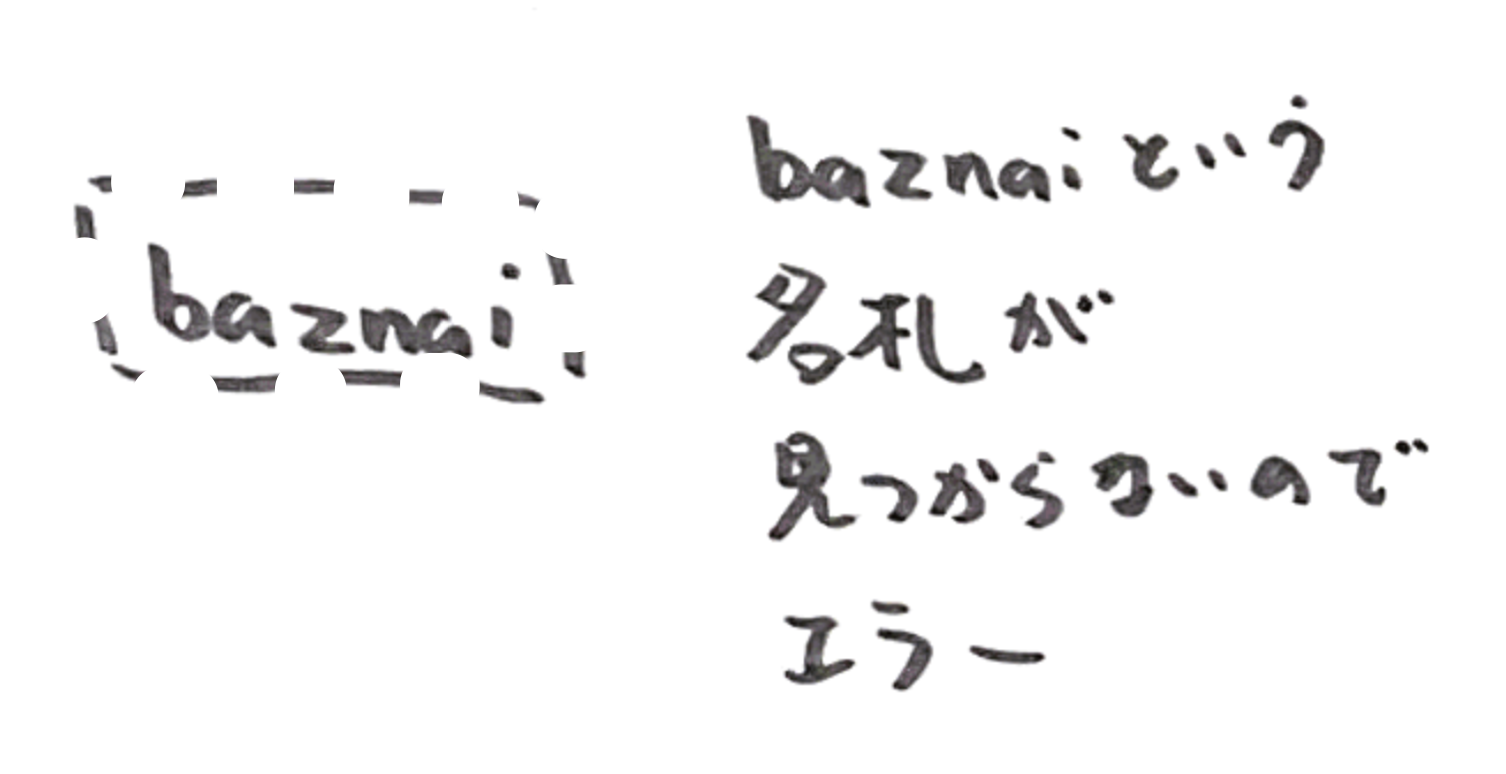 baznai
baznaiという
名札が
見つからないので
エラー